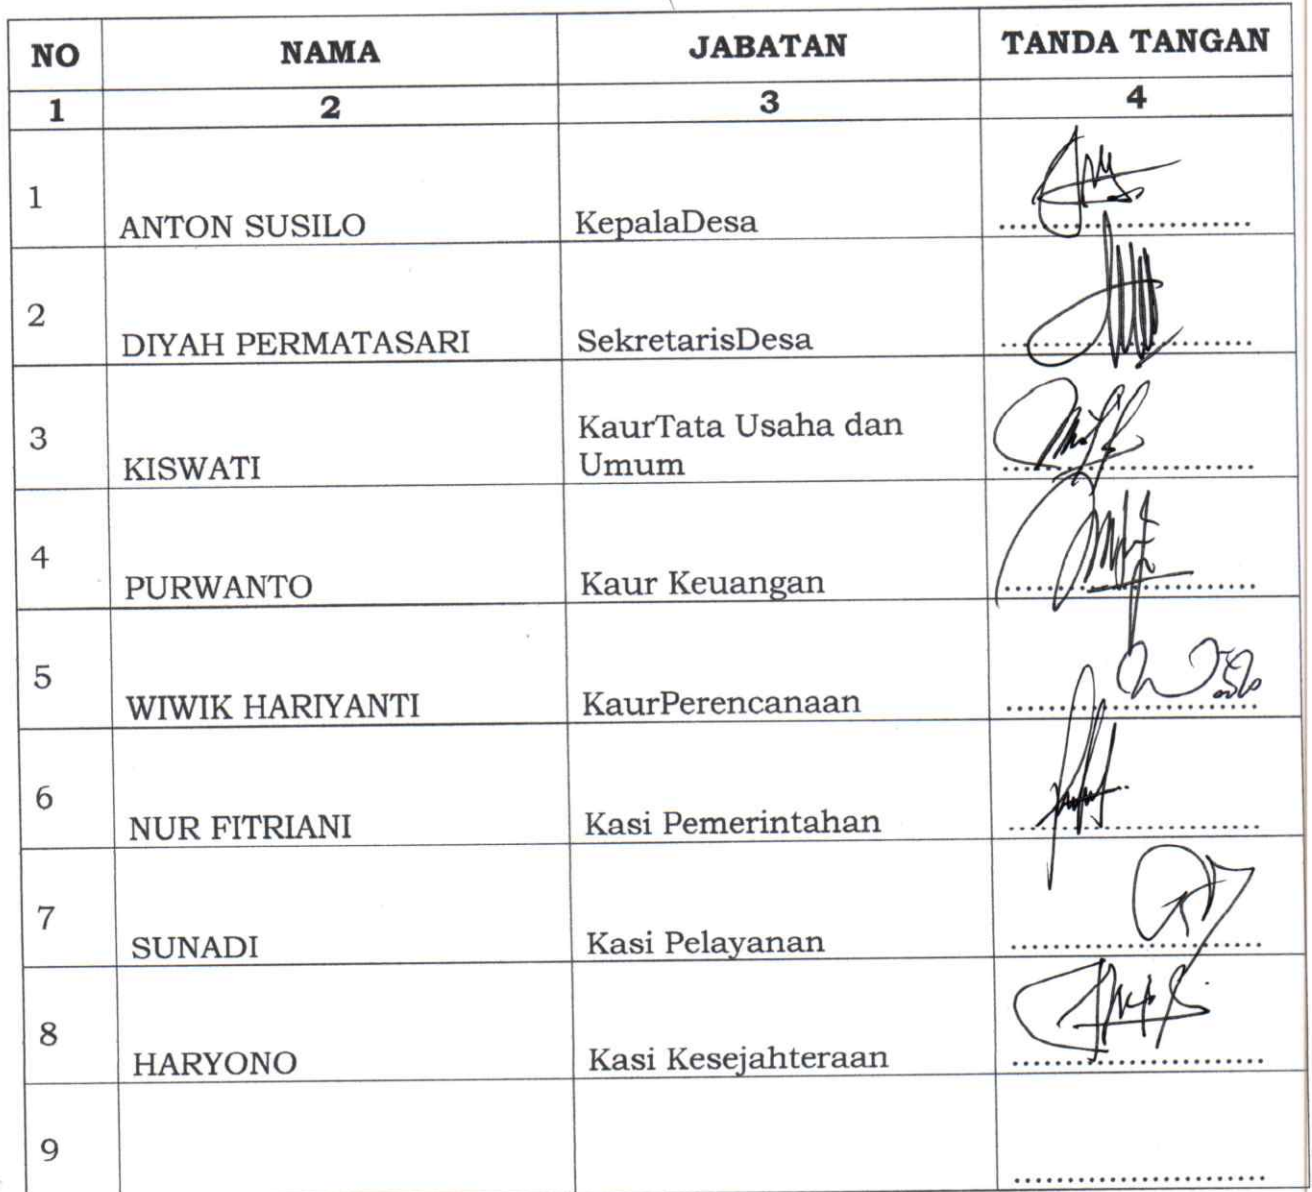 NO NAMA JABATAN TANDA TANGAN
1 2 3 4
1 ANTON SUSILO KepalaDesa ........................
2 DIYAH PERMATASARI SekretarisDesa ........................
3 KISWATI KaurTata Usaha dan
Umum ........................
4 PURWANTO Kaur Keuangan ........................
5 WIWIK HARIYANTI KaurPerencanaan ........................
6 NUR FITRIANI Kasi Pemerintahan ........................
7 SUNADI Kasi Pelayanan ........................
8 HARYONO Kasi Kesejahteraan ........................
9 ........................